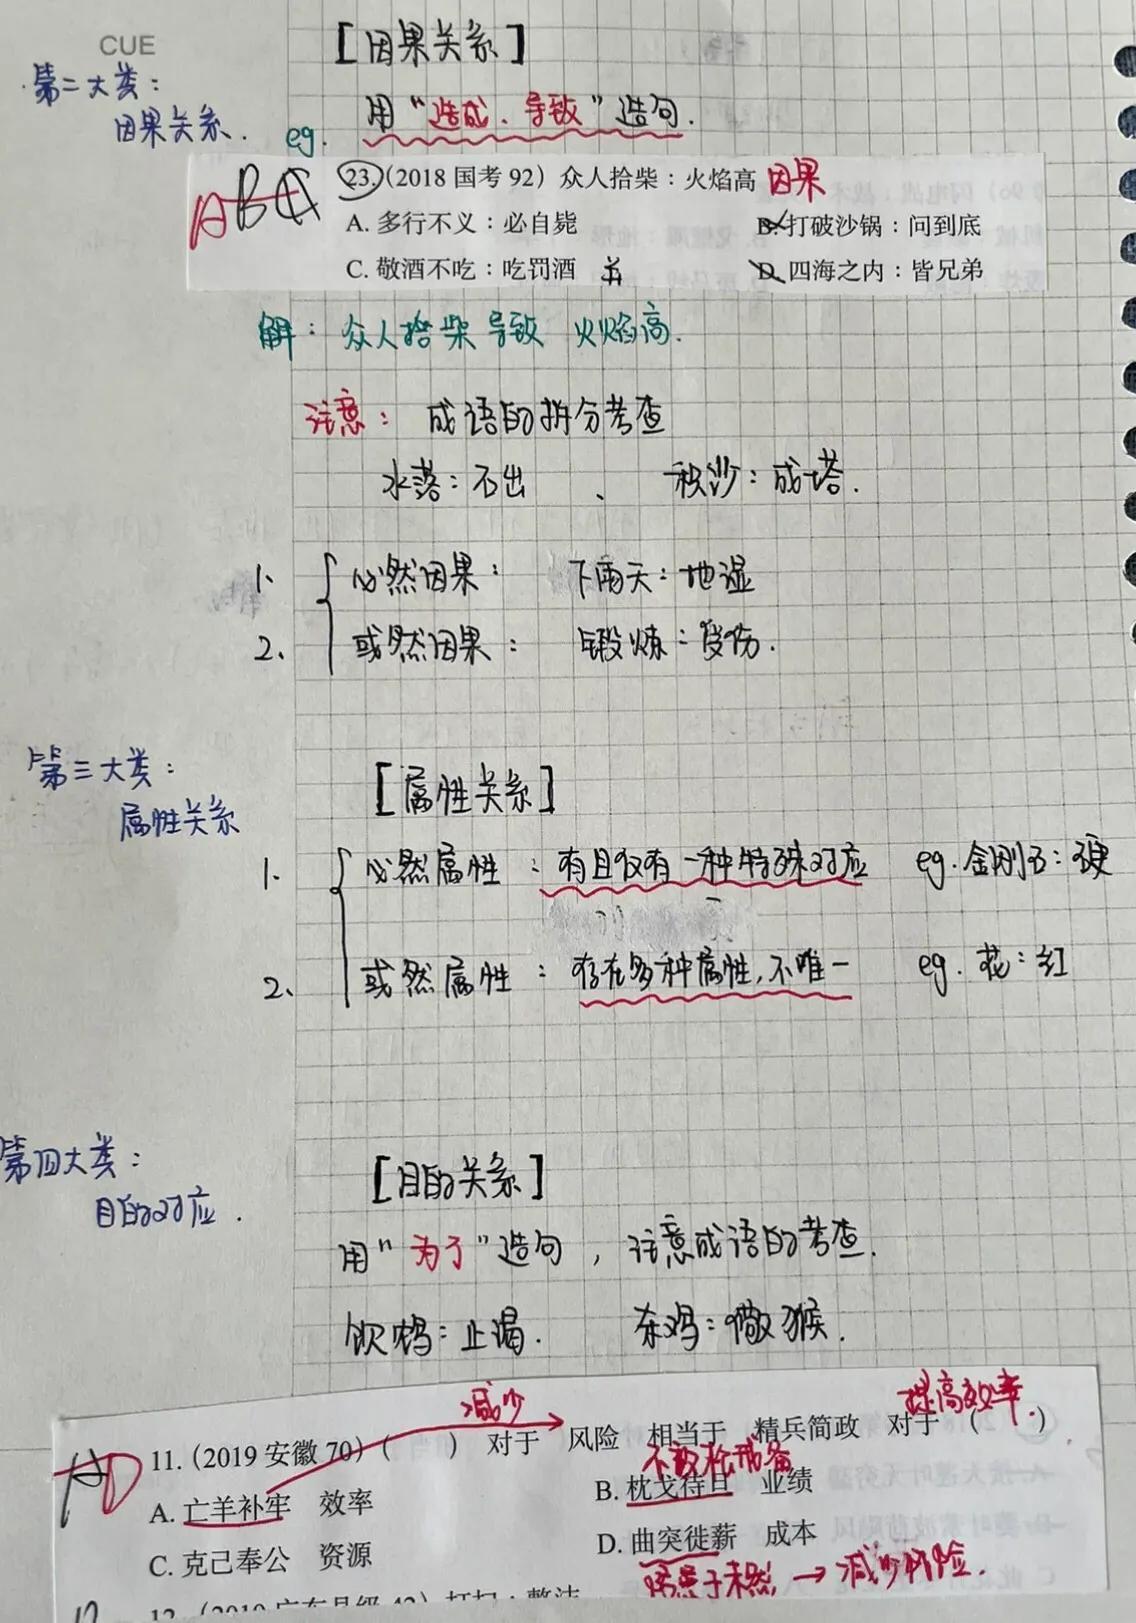 CUE
[因果关系]
第二大类：
因果关系.
用“造成、导致”造句.
eg.
ABC
23.(2018国考92) 众人拾柴：火焰高 因果
A. 多行不义：必自毙
B. 打破沙锅：问到底
C. 敬酒不吃：吃罚酒
D. 四海之内：皆兄弟
解：众人拾柴导致 火焰高.
注意：成语的拆分考查
水落：石出 、 积沙：成塔.
1、必然因果： 下雨天：地湿
2、或然因果： 锻炼：受伤.
第三大类：
属性关系
[属性关系]
1. 必然属性：有且仅有一种特殊对应 eg.金刚石：硬
2、或然属性：存在多种属性,不唯一 eg. 花：红
第四大类：
目的对应.
[目的关系]
用“为了”造句，注意成语的考查.
饮鸩：止渴. 杀鸡：儆猴.
减少 提高效率.
11.(2019安徽70)( ) 对于 风险 相当于 精兵简政 对于 ( )
AD
不敢松戒备
A. 亡羊补牢 效率
B. 枕戈待旦 业绩
C. 克己奉公 资源
D. 曲突徙薪 成本
防患于未然 → 减少风险.
12
12.(2019广东县级42)打扫：整洁